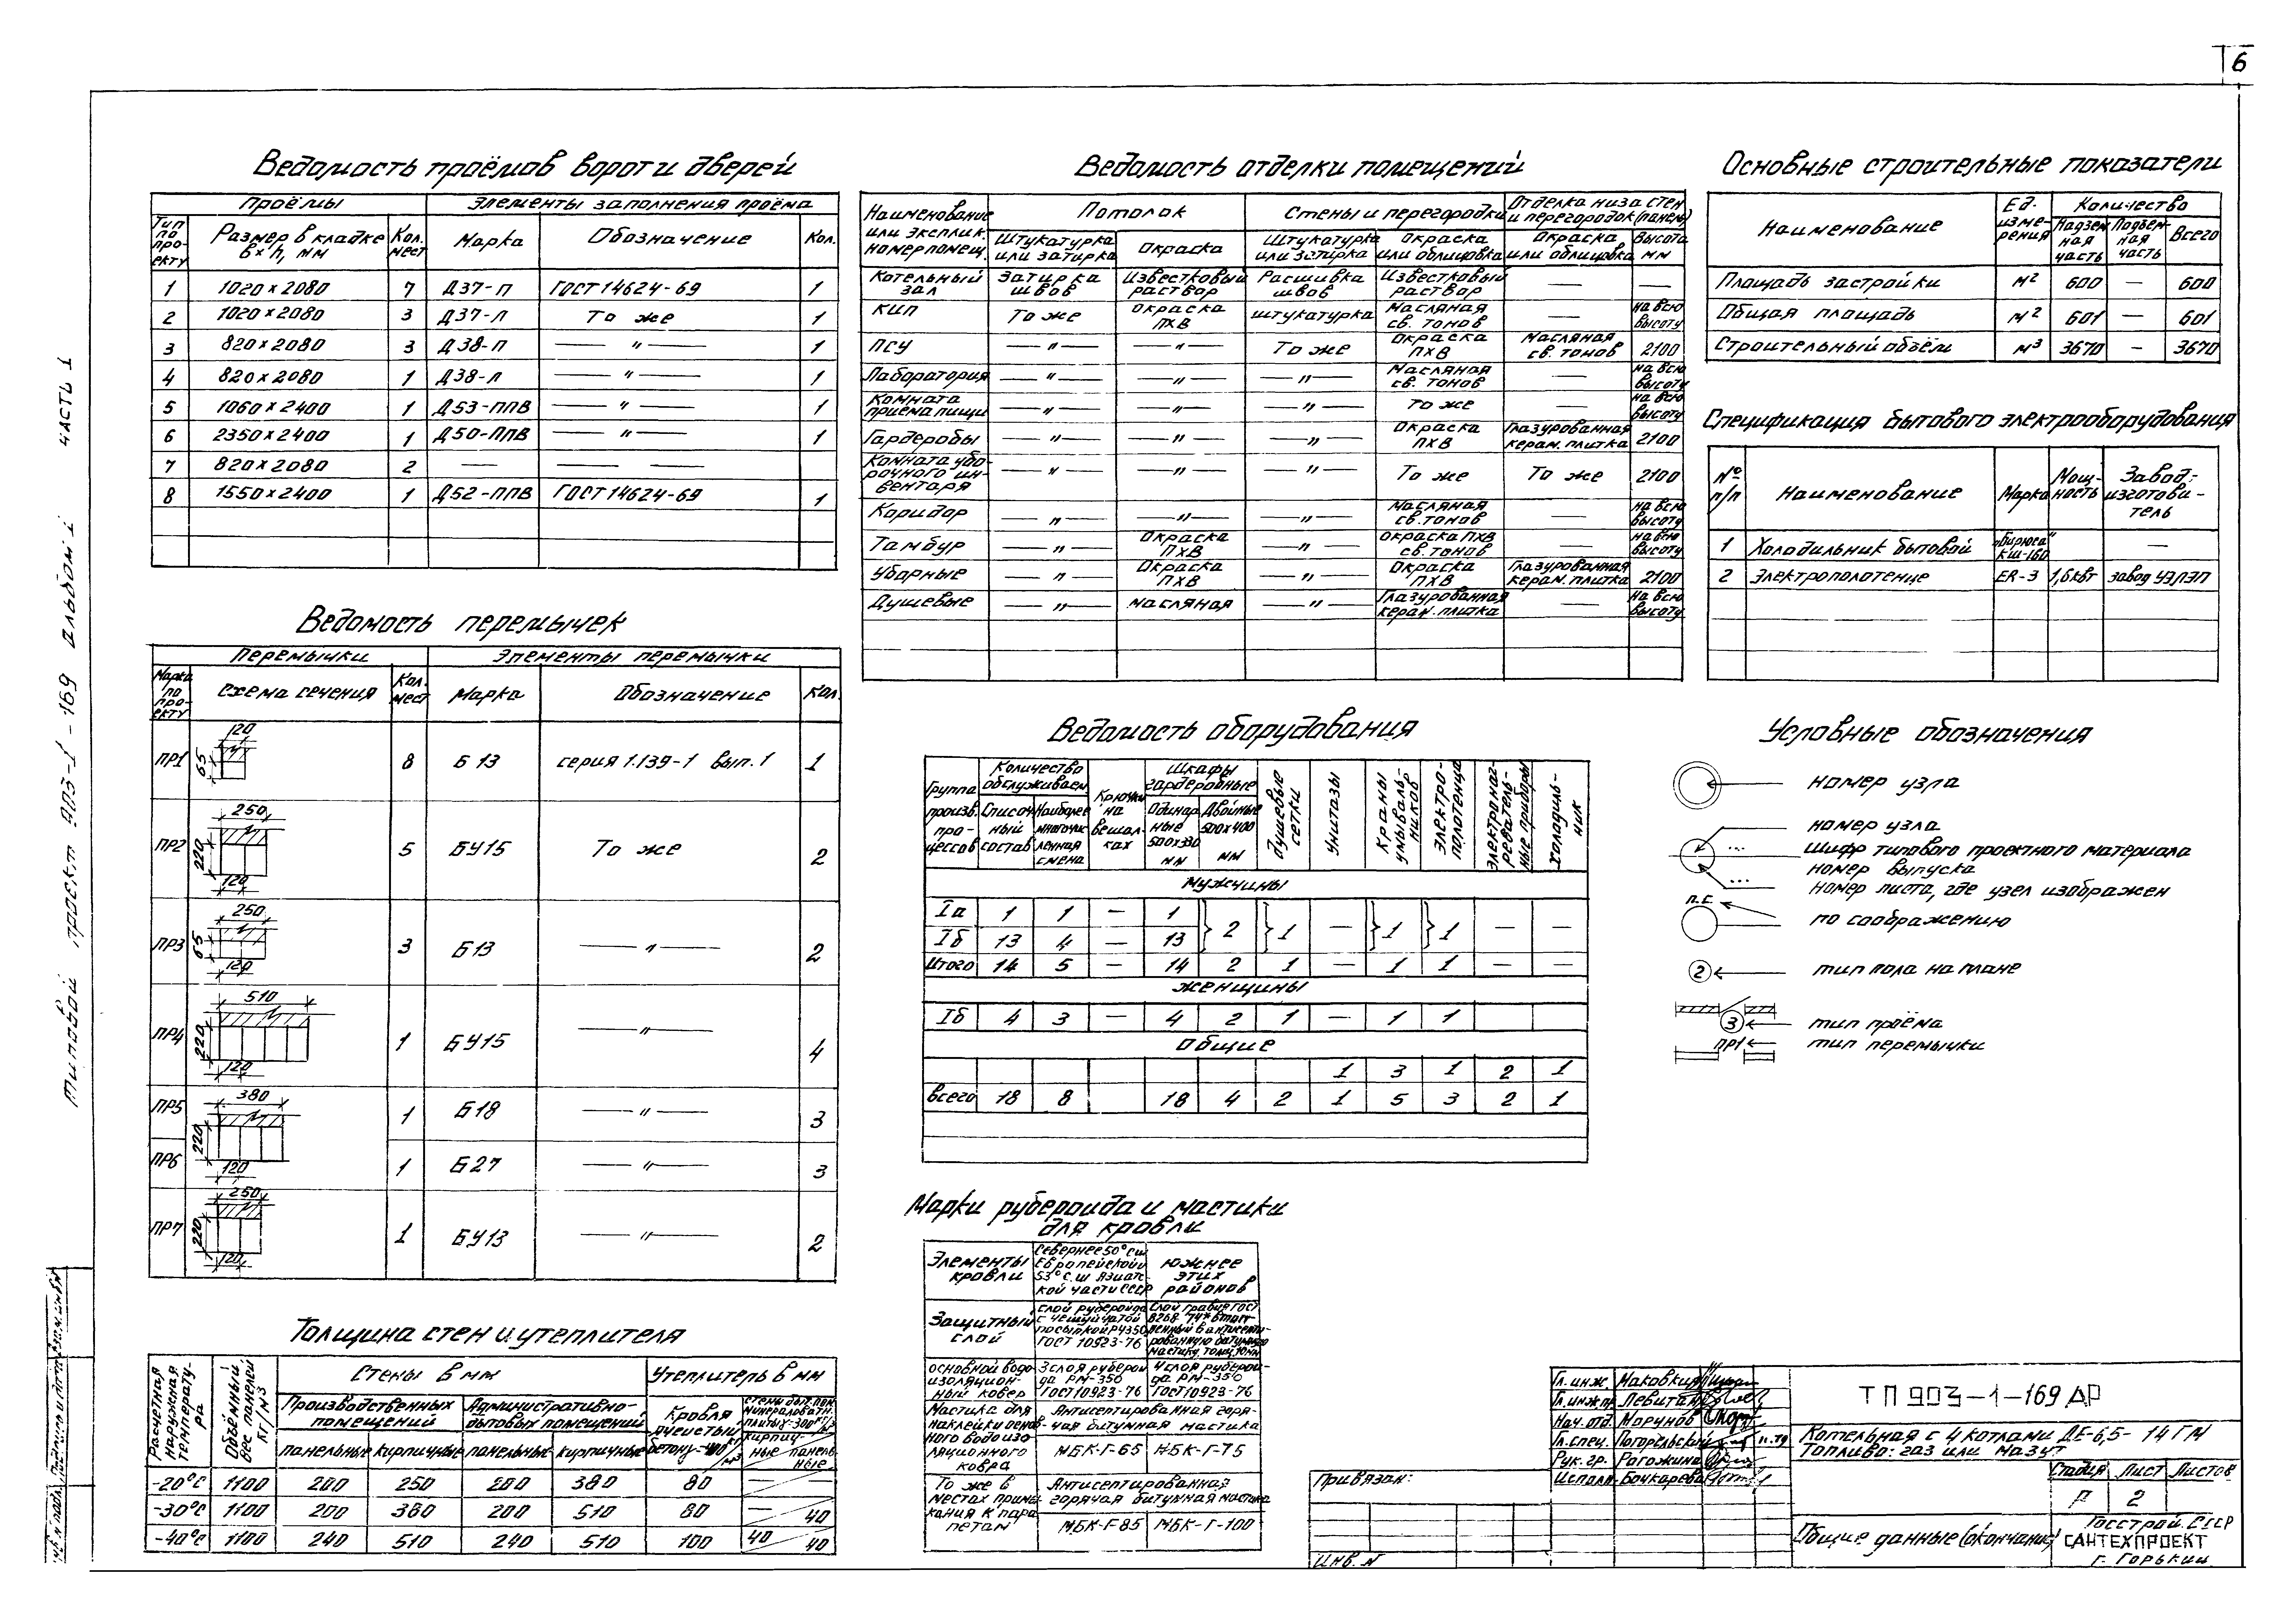 6
Типовой проект 903-1-169 Альбом I Часть 1
Ведомость проёмов ворот и дверей
Проёмы
Элементы заполнения проёма
Тип по про-екту
Размер в кладке в×h, мм
Кол. мест
Марка
Обозначение
Кол.
1 1020×2080 7 Д37-П ГОСТ 14624-69 1
2 1020×2080 3 Д37-Л То же 1
3 820×2080 3 Д38-П —"— 1
4 820×2080 1 Д38-Л —"— 1
5 1060×2400 1 Д53-ППВ —"— 1
6 2350×2400 1 Д50-ППВ —"— 1
7 820×2080 2 — — —
8 1550×2400 1 Д52-ППВ ГОСТ 14624-69 1
Ведомость перемычек
Перемычки
Элементы перемычки
Марка по про-екту
Схема сечения
Кол. мест
Марка
Обозначение
Кол.
ПР1 120 65 8 Б13 серия 1.139-1 вып.1 1
ПР2 250 220 120 5 БУ15 То же 2
ПР3 250 65 120 3 Б13 —"— 2
ПР4 510 220 120 1 БУ15 —"— 4
ПР5 380 220 1 Б18 —"— 3
ПР6 120 1 Б27 —"— 3
ПР7 250 220 120 1 БУ13 —"— 2
Толщина стен и утеплителя
Расчетная наружная температу-ра
Объёмный вес панелей кг/м3
Стены в мм
Утеплитель в мм
Производственных помещений
Административно-бытовых помещений
Кровля
панельные кирпичные панельные кирпичные
кирпич-ные панель-ные
-20°С 1100 200 250 200 380 80 —
-30°С 1100 200 380 200 510 80 — 40
-40°С 1100 240 510 240 510 100 40 40
Ведомость отделки помещений
Наименование или эксплик. номер помещ.
Потолок
Стены и перегородки
Отделка низа стен и перегородок (панель)
Штукатурка или затирка
Окраска
Штукатурка или затирка
Окраска или облицовка
Окраска или облицовка
Высота мм
Котельный зал Затирка швов Известковый раствор Расшивка швов Известковый раствор — —
КИП То же Окраска ПХВ штукатурка Масляная св. тонов — на всю высоту
ПСУ —"— —"— То же Окраска ПХВ Масляная св. тонов 2100
Лаборатория —"— —"— —"— Масляная св. тонов — на всю высоту
Комната приема пищи —"— —"— —"— То же — на всю высоту
Гардеробы —"— —"— —"— Окраска ПХВ Глазурованная керам. плитка 2100
Комната убо-рочного ин-вентаря —"— —"— —"— То же То же 2100
Коридор —"— —"— —"— Масляная св. тонов — на всю высоту
Тамбур —"— Окраска ПХВ —"— Окраска ПХВ св. тонов — на всю высоту
Уборные —"— Окраска ПХВ —"— Окраска ПХВ Глазурованная керам. плитка 2100
Душевые —"— масляная —"— Глазурованная керам. плитка — на всю высоту
Ведомость оборудования
Группа произв. про-цессов
Количество обслуживаем
Списоч-ный состав
Наиболее многочис-ленная смена
Крючки на вешал-ках
Шкафы гардеробные
Одинар-ные 500×330 мм
Двойные 500×400 мм
Душевые сетки
Унитазы
Краны умываль-ников
Электро-полотенца
Электронаг-реватель-ные приборы
Холодиль-ник
Мужчины
Iа 1 1 — 1
Iб 13 4 — 13
2 1 — 1 1 — —
Итого 14 5 — 14 2 1 — 1 1 — —
Женщины
Iб 4 3 — 4 2 1 — 1 1
Общие
1 3 1 2 1
Всего 18 8 18 4 2 1 5 3 2 1
Марки рубероида и мастики
для кровли
Элементы кровли
Севернее 50° с.ш Европейской и 53° с.ш Азиатс-кой части СССР
Южнее этих районов
Защитный слой
слой рубероида с чешуйчатой посыпкой РЧ350 ГОСТ 10923-76
основной водо-изоляцион-ный ковер
3 слоя руберои-да РМ-350 ГОСТ 10923-76
4 слоя руберои-да РМ-350 ГОСТ 10923-76
Мастика для наклейки основ-ного водоизо-ляционного ковра
Антисептированная горя-чая битумная мастика
МБК-Г-65 МБК-Г-75
То же в местах примы-кания к пара-петам
Антисептированная горячая битумная мастика
МБК-Г-85 МБК-Г-100
Основные строительные показатели
Наименование
Ед. изме-рения
Количество
Надзем-ная часть
Подзем-ная часть
Всего
Площадь застройки м2 600 — 600
Общая площадь м2 601 — 601
Строительный объём м3 3670 — 3670
Спецификация бытового электрооборудования
№ п/п
Наименование
Марка
Мощ-ность
Завод-изготови-тель
1 Холодильник бытовой „Бирюса" КШ-160 —
2 Электрополотенце ER-3 1,6квт завод УЭЛЭП
Условные обозначения
номер узла
номер узла
...
шифр типового проектного материала
номер выпуска
...
номер листа, где узел изображен
п.с.
по соображению
2 тип пола на плане
3 тип проёма
ПР1 тип перемычки
Привязан:
Инв. №
Гл. инж. Маковкин
Гл.инж.пр. Левитан
Нач. отд. Морунов
Гл.спец. Погорельский
Рук. гр. Рагожина
Исполн. Бочкарева
ТП 903-1-169 АР
Котельная с 4 котлами ДЕ-6,5-14ГМ
Топливо: газ или мазут
Стадия Лист Листов
Р 2
Общие данные (окончание)
Госстрой СССР
САНТЕХПРОЕКТ
г. Горький